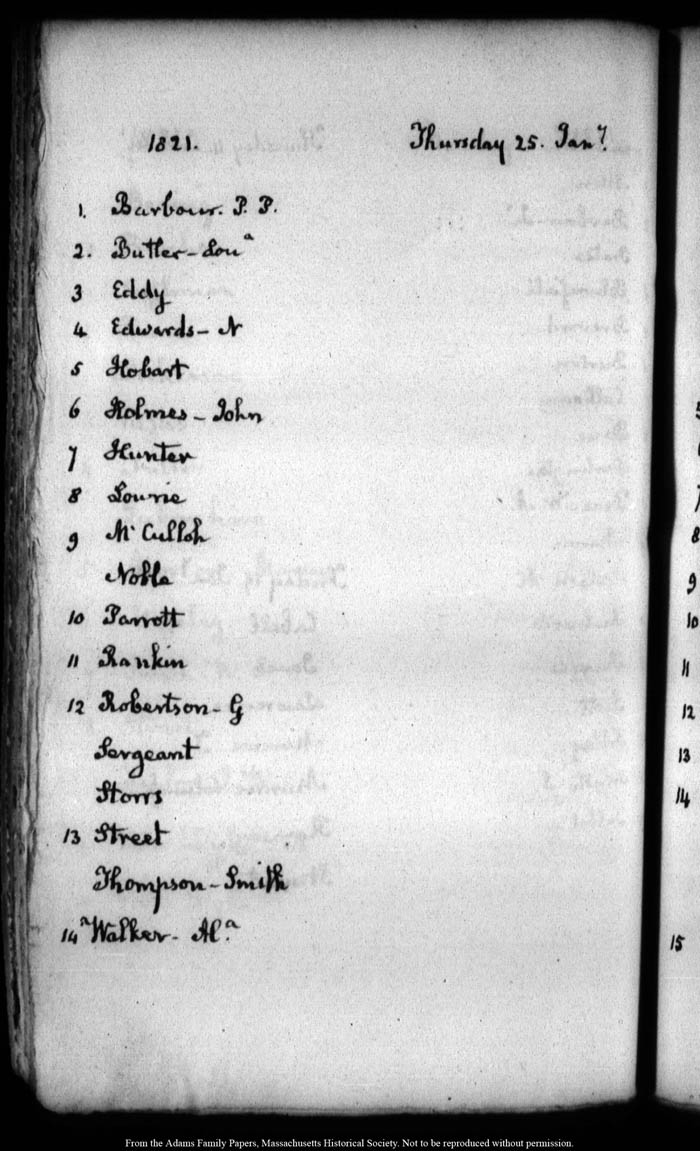 1821.
Thursday 25. Jany.
1. Barbour. P. P.
2. Butler - Loua
3 Eddy
4 Edwards - N
5 Hobart
6 Holmes - John
7 Hunter
8 Lowrie
9 McCulloh
Noble
10 Parrott
11 Rankin
12 Robertson - G
Sergeant
Storrs
13 Street
Thompson - Smith
14a Walker - Ala.
7
8
9
10
11
12
13
14
15
From the Adams Family Papers, Massachusetts Historical Society. Not to be reproduced without permission.